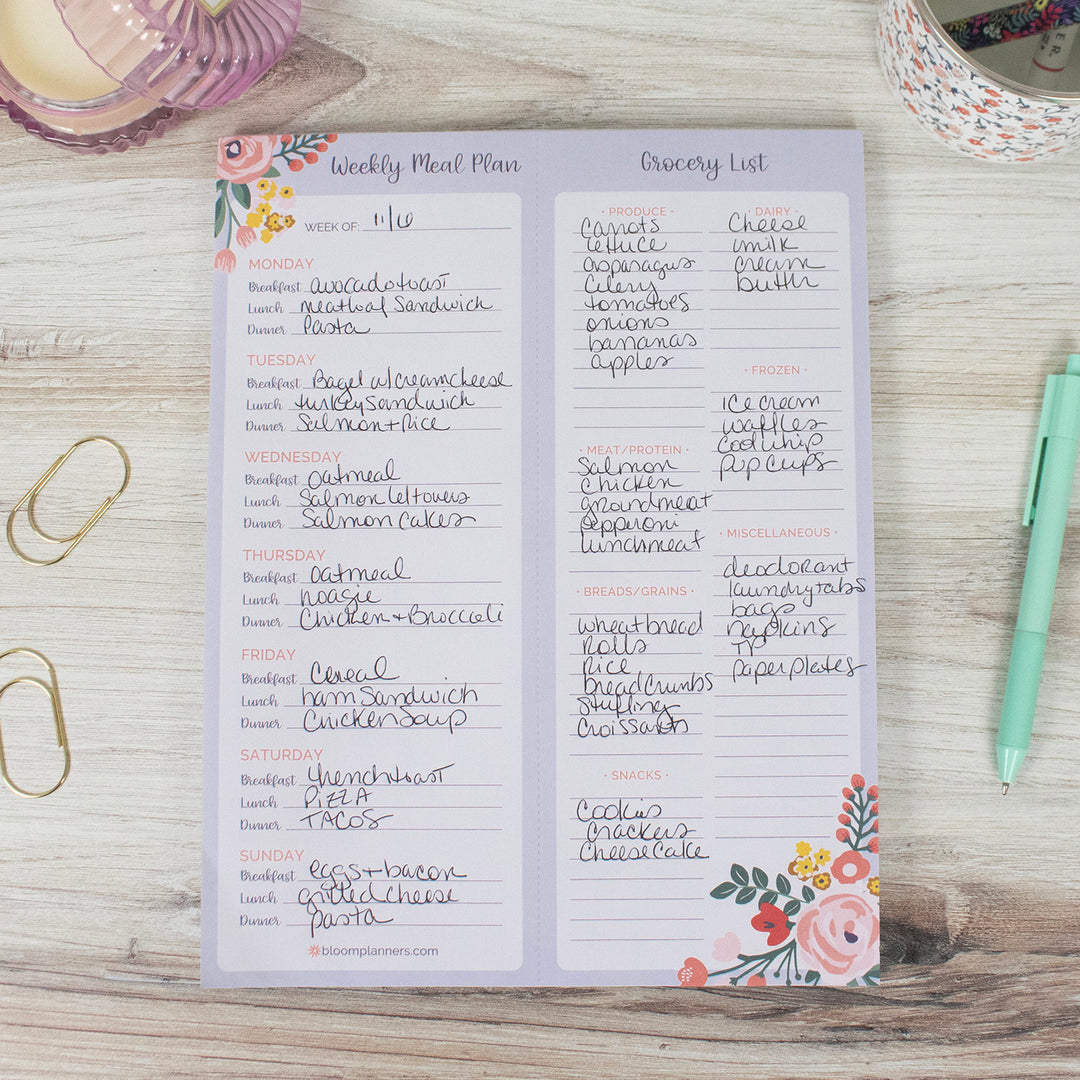 Weekly Meal Plan
WEEK OF: 11/6
MONDAY
Breakfast avocado toast
Lunch meatloaf Sandwich
Dinner Pasta
TUESDAY
Breakfast Bagel w/creamcheese
Lunch turkey Sandwich
Dinner Salmon + Rice
WEDNESDAY
Breakfast oatmeal
Lunch Salmon leftovers
Dinner Salmon Cakes
THURSDAY
Breakfast oatmeal
Lunch hoagie
Dinner Chicken + Broccoli
FRIDAY
Breakfast Cereal
Lunch ham Sandwich
Dinner Chicken Soup
SATURDAY
Breakfast frenchtoast
Lunch PIZZA
Dinner TACOS
SUNDAY
Breakfast eggs + bacon
Lunch grilled cheese
Dinner pasta
bloomplanners.com
Grocery List
· PRODUCE ·
Carrots
lettuce
asparagus
Celery
tomatoes
onions
bananas
apples
· MEAT/PROTEIN ·
Salmon
Chicken
groundmeat
pepperoni
lunchmeat
· BREADS/GRAINS ·
wheatbread
Rolls
Rice
breadcrumbs
Stuffing
Croissants
· SNACKS ·
Cookies
Crackers
CheeseCake
· DAIRY ·
Cheese
milk
cream
butter
· FROZEN ·
ice cream
waffles
Coolwhip
pup cups
· MISCELLANEOUS ·
deodorant
laundry tabs
bags
napkins
TP
paper plates